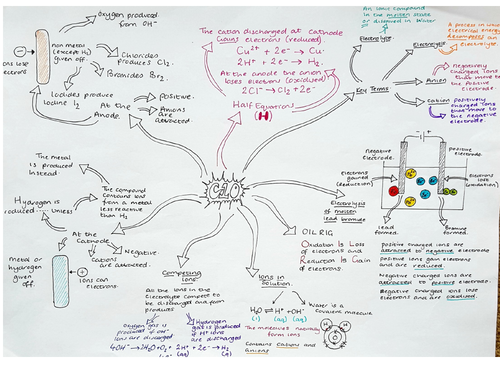 Oxygen produced
from OH⁻
non metal
(except H₂)
given off.
Chlorides
produce Cl₂.
Bromides Br₂.
Iodides produce
Iodine I₂
At the
Anode.
Positive.
Anions
are attracted.
The cation discharged at cathode
Gains electrons (reduced)
Cu²⁺ + 2e⁻ → Cu.
2H⁺ + 2e⁻ → H₂.
At the anode the anion
loses electron (oxidised)
2Cl⁻ → Cl₂ + 2e⁻
Half Equation
(H)
An ionic compound
in the molten state
or dissolved in water
Electrolyte
A process in which
electrical energy
decomposes an
electrolyte.
Electrolysis
Key Terms
Anion
negatively
charged ions
that move to
the positive
electrode.
Cation
positively
charged ions
that move to
the negative
electrode.
C10
The metal
is produced
instead.
Hydrogen is
produced
unless
The compound
contains ions
from a metal
less reactive
than H₂
At the
Cathode
Negative.
Cations
are attracted.
Metal or
hydrogen
given
off.
ions gain
electrons.
Competing
Ions
All the ions in the
Electrolyte compete to
be discharged and form
products
Oxygen gas is
produced if OH⁻
ions are discharged
4OH⁻ → 2H₂O + O₂
Hydrogen
gas is produced
if H⁺ ions
are discharged
2H⁺ + 2e⁻ → H₂
(aq) (g)
Ions in
Solution
Water is a
covalent molecule
H₂O ⇌ H⁺ + OH⁻
(l) (aq) (aq)
The molecules naturally
form ions.
Contains cations and
Anions
OIL RIG
Oxidation Is Loss
of electrons
Reduction Is Gain
of electrons.
Electrolysis
of molten
lead bromide
negative
electrode.
positive
electrode.
Electrons
gained
(Reduction)
Electrons
lost
(oxidation)
Lead
formed.
Bromine
formed.
positive charged ions are
attracted to negative electrode
positive ions gain electrons
and are reduced.
Negative charged ions are
attracted to positive electrode.
Negative charged ions lose
electrons and are oxidised